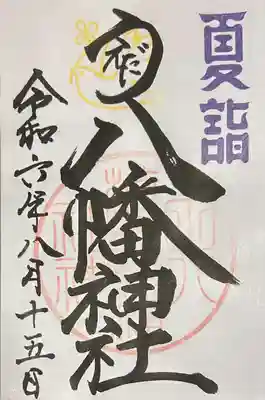 夏詣
八幡神社
令和六年八月十五日